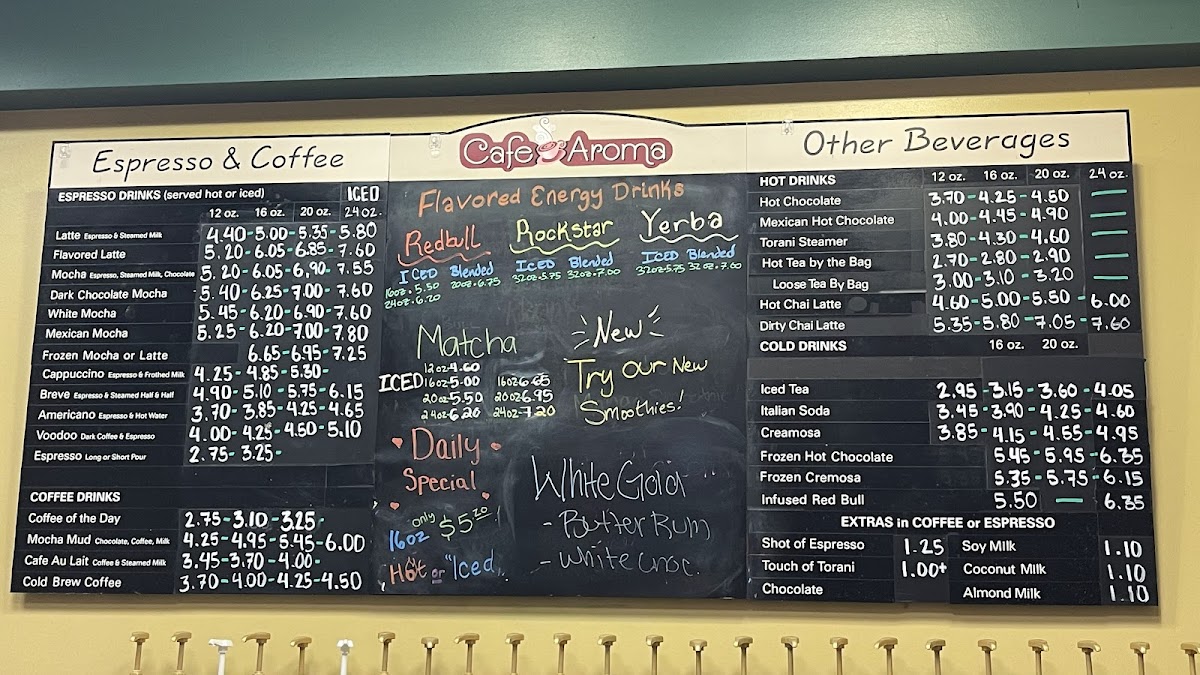 Espresso & Coffee
ESPRESSO DRINKS (served hot or iced) ICED
12 oz. 16 oz. 20 oz. 24 oz.
Latte Espresso & Steamed Milk 4.40-5.00-5.35-5.80
Flavored Latte 5.20-6.05-6.85-7.60
Mocha Espresso, Steamed Milk, Chocolate 5.20-6.05-6.90-7.55
Dark Chocolate Mocha 5.40-6.25-7.00-7.60
White Mocha 5.45-6.20-6.90-7.60
Mexican Mocha 5.25-6.20-7.00-7.80
Frozen Mocha or Latte 6.65-6.95-7.25
Cappuccino Espresso & Frothed Milk 4.25-4.85-5.30-
Breve Espresso & Steamed Half & Half 4.90-5.10-5.75-6.15
Americano Espresso & Hot Water 3.70-3.85-4.25-4.65
Voodoo Dark Coffee & Espresso 4.00-4.25-4.60-5.10
Espresso Long or Short Pour 2.75-3.25-
COFFEE DRINKS
Coffee of the Day 2.75-3.10-3.25-
Mocha Mud Chocolate, Coffee, Milk 4.25-4.95-5.45-6.00
Cafe Au Lait Coffee & Steamed Milk 3.45-3.70-4.00-
Cold Brew Coffee 3.70-4.00-4.25-4.50
Cafe Aroma
Flavored Energy Drinks
Redbull Rockstar Yerba
ICED Blended ICED Blended ICED Blended
16oz.5.50 20oz.6.75 32oz.5.75 32oz.7.00 32oz.5.75 32oz.7.00
24oz.6.20
Matcha
12oz 4.60
ICED 16oz 5.00 16oz 6.65
20oz 5.50 20oz 6.95
24oz 6.20 24oz 7.20
New
Try Our New
Smoothies!
Daily
Special
only $5.20
16oz
Hot or "Iced
White Gold
- Butter Rum
- White Choc.
Other Beverages
HOT DRINKS 12 oz. 16 oz. 20 oz. 24 oz.
Hot Chocolate 3.70-4.25-4.50 —
Mexican Hot Chocolate 4.00-4.45-4.90 —
Torani Steamer 3.80-4.30-4.60 —
Hot Tea by the Bag 2.70-2.80-2.90 —
Loose Tea By Bag 3.00-3.10-3.20 —
Hot Chai Latte 4.60-5.00-5.50-6.00
Dirty Chai Latte 5.35-5.80-7.05-7.60
COLD DRINKS 16 oz. 20 oz.
Iced Tea 2.95-3.15-3.60-4.05
Italian Soda 3.45-3.90-4.25-4.60
Creamosa 3.85-4.15-4.55-4.95
Frozen Hot Chocolate 5.45-5.95-6.35
Frozen Cremosa 5.35-5.75-6.15
Infused Red Bull 5.50 — 6.35
EXTRAS in COFFEE or ESPRESSO
Shot of Espresso 1.25 Soy Milk 1.10
Touch of Torani 1.00+ Coconut Milk 1.10
Chocolate Almond Milk 1.10